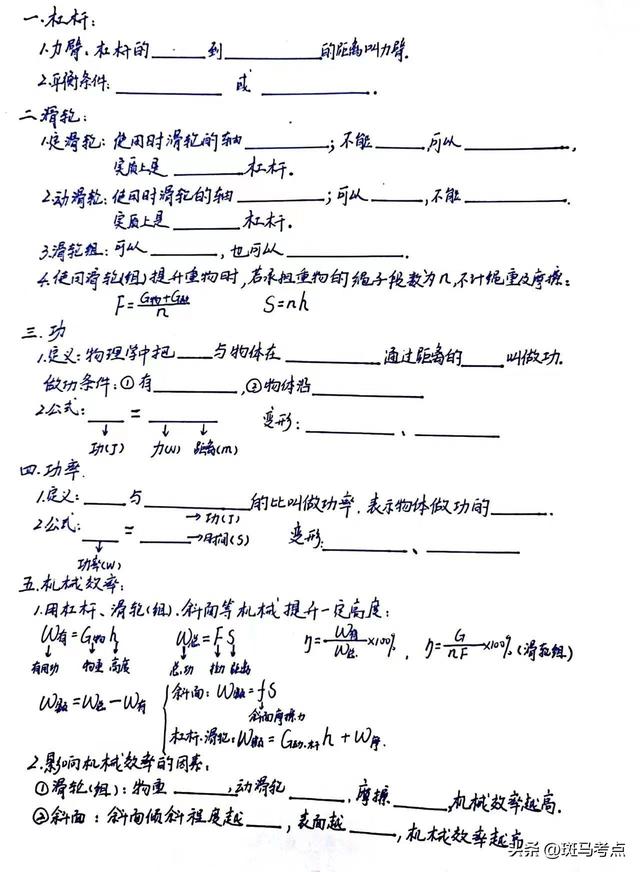 一.杠杆:
1.力臂、杠杆的______到__________的距离叫力臂.
2.平衡条件:__________ 或 __________.
二.滑轮:
1.定滑轮:使用时滑轮的轴________;不能_____,可以_________,
实质上是_______杠杆.
2.动滑轮:使用时滑轮的轴________;可以_____,不能_________.
实质上是_______杠杆.
3.滑轮组:可以_______,也可以____________.
4.使用滑轮(组)提升重物时,若承担重物的绳子段数为n,不计绳重及摩擦:
F=(G物+G动)/n S=nh
三.功
1.定义:物理学中把____与物体在_________通过距离的____叫做功.
做功条件:①有________,②物体沿__________
2.公式:____=________ 变形:________、________
功(J) 力(N) 距离(m)
四.功率.
1.定义:____与__________的比叫做功率.表示物体做功的______.
→功(J)
2.公式____=______→时间(S) 变形:________、________
功率(W)
五.机械效率:
1.用杠杆、滑轮(组).斜面等机械提升一定高度:
W有=G物h W总=FS η=W有/W总×100%, η=G/nF×100%(滑轮组)
有用功 物重 高度 总功 拉力 距离
W额=W总-W有 斜面:W额=fS
斜面摩擦力
杠杆.滑轮:W额=G动.杆h+W摩.
2.影响机械效率的因素:
①滑轮(组):物重______,动滑轮______,摩擦______,机械效率越高.
②斜面:斜面倾斜程度越_____,表面越_____,机械效率越高
头条@斑马考点